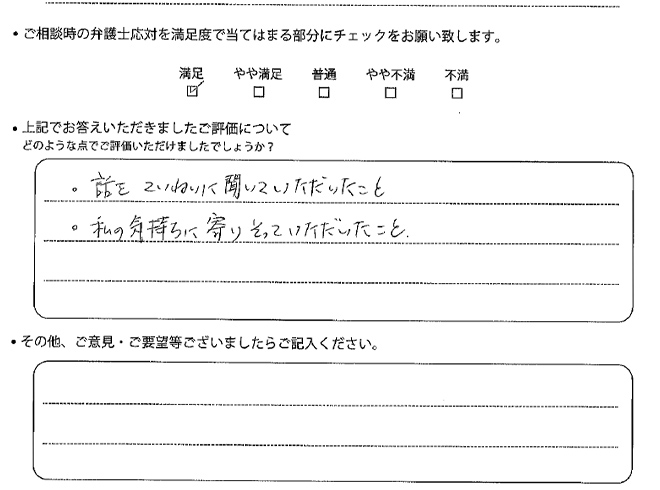 ・ご相談時の弁護士応対を満足度で当てはまる部分にチェックをお願い致します。
満足 やや満足 普通 やや不満 不満
☑ □ □ □ □
・上記でお答えいただきましたご評価について
どのような点でご評価いただけましたでしょうか？
。話を ていねいに聞いていただいたこと
。私の気持ちに寄りそっていただいたこと.
・その他、ご意見・ご要望等ございましたらご記入ください。